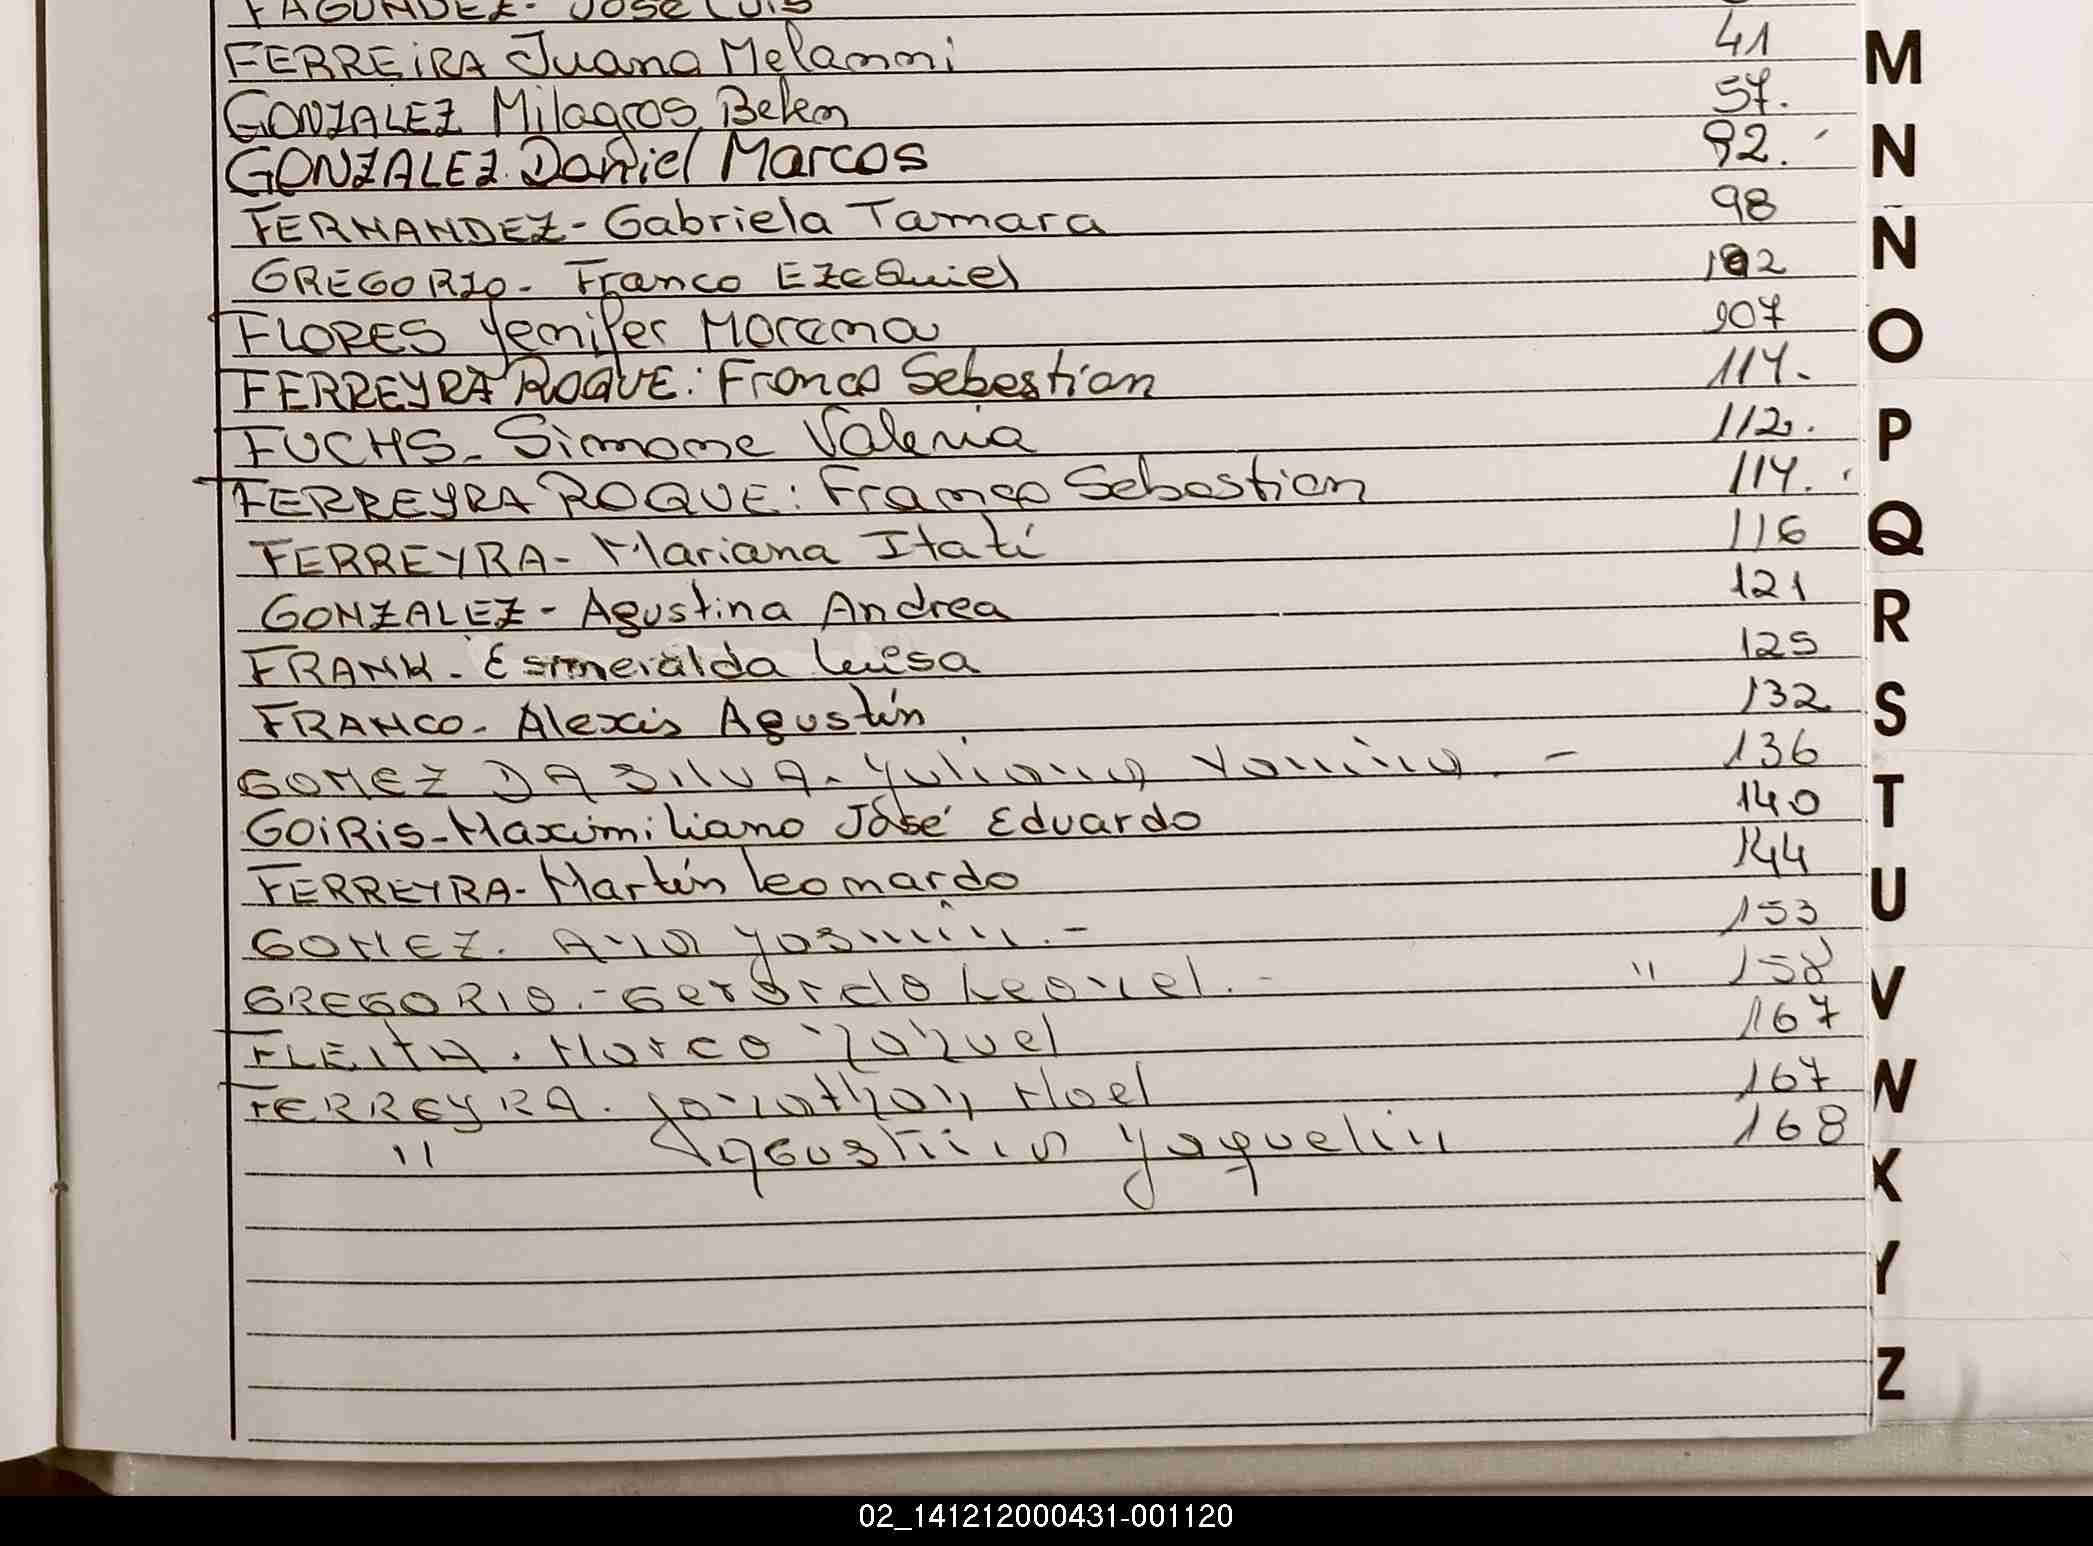 FAGUNDEZ- José Luis
FERREIRA Juana Melanni 41
GONZALEZ Milagros Belen 57.
GONZALEZ. Daniel Marcos 92.
FERNANDEZ- Gabriela Tamara 98
GREGORIO- Franco EzeQuiel 102
FLORES Yenifer Morena 107
FERREYRA ROQUE: Franco Sebastian 114.
FUCHS- Simone Valeria 112.
FERREYRA ROQUE: Franco Sebastian 114.
FERREYRA- Mariana Itatí 116
GONZALEZ- Agustina Andrea 121
FRANK- Esmeralda Luisa 125
FRANCO- Alexis Agustín 132
GOMEZ DA SILVA. Yuliana Yanina - 136
GOIRIS-Maximiliano José Eduardo 140
FERREYRA- Martín Leonardo 144
GOMEZ. Ana Yasmin.- 153
GREGORIO.- Gerardo Leonel.- " 158
FLEITA. Marco 167
FERREYRA. Jonathan Noel 167
" Agustina Yaquelin 168
M
N
Ñ
O
P
Q
R
S
T
U
V
W
X
Y
Z
02_141212000431-001120